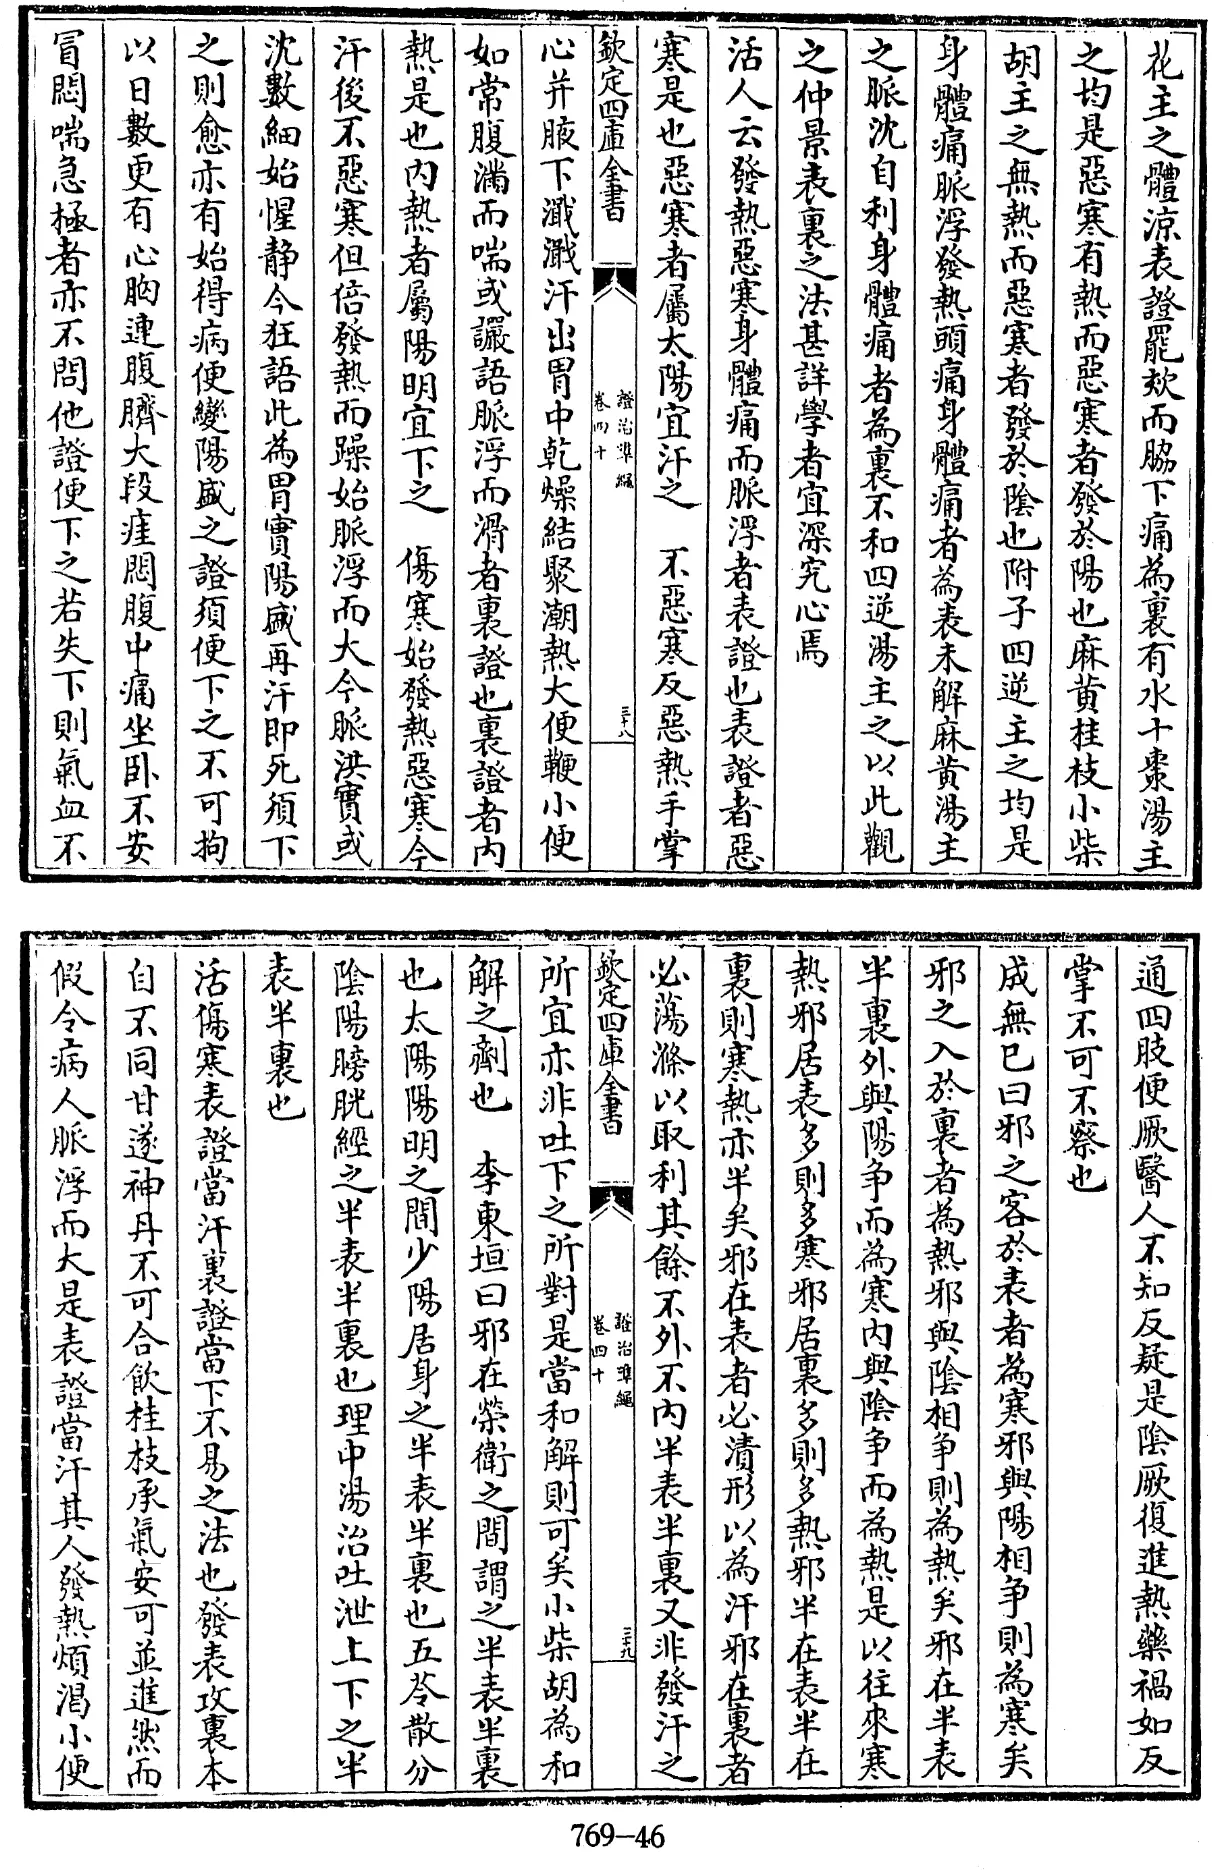 花主之體涼表證罷欬而脇下痛為裏有水十棗湯主
之均是惡寒有熱而惡寒者發於陽也麻黃桂枝小柴
胡主之無熱而惡寒者發於陰也附子四逆主之均是
身體痛脈浮發熱頭痛身體痛者為表未解麻黃湯主
之脈沈自利身體痛者為裏不和四逆湯主之以此觀
之仲景表裏之法甚詳學者宜深究心焉
活人云發熱惡寒身體痛而脈浮者表證也表證者惡
寒是也惡寒者屬太陽宜汗之　不惡寒反惡熱手掌
欽定四庫全書
證治準繩
卷四十
三十八
心并腋下濈濈汗出胃中乾燥結聚潮熱大便鞕小便
如常腹滿而喘或讝語脈浮而滑者裏證也裏證者內
熱是也內熱者屬陽明宜下之　傷寒始發熱惡寒今
汗後不惡寒但倍發熱而躁始脈浮而大今脈洪實或
沈數細始惺靜今狂語此為胃實陽盛再汗即死須下
之則愈亦有始得病便變陽盛之證須便下之不可拘
以日數更有心胸連腹臍大段㽲悶腹中痛坐臥不安
冒悶喘急極者亦不問他證便下之若失下則氣血不
通四肢便厥醫人不知反疑是陰厥復進熱藥禍如反
掌不可不察也
成無已曰邪之客於表者為寒邪與陽相爭則為寒矣
邪之入於裏者為熱邪與陰相爭則為熱矣邪在半表
半裏外與陽爭而為寒內與陰爭而為熱是以往來寒
熱邪居表多則多寒邪居裏多則多熱邪半在表半在
裏則寒熱亦半矣邪在表者必漬形以為汗邪在裏者
必蕩滌以取利其餘不外不內半表半裏又非發汗之
欽定四庫全書
證治準繩
卷四十
三十九
所宜亦非吐下之所對是當和解則可矣小柴胡為和
解之劑也　李東垣曰邪在榮衛之間謂之半表半裏
也太陽陽明之間少陽居身之半表半裏也五苓散分
陰陽膀胱經之半表半裏也理中湯治吐泄上下之半
表半裏也
活傷寒表證當汗裏證當下不易之法也發表攻裏本
自不同甘遂神丹不可合飲桂枝承氣安可並進然而
假令病人脈浮而大是表證當汗其人發熱煩渴小便
769-46